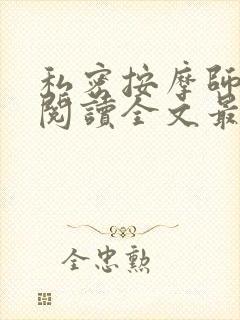 私密按摩師
閱讀全文最
全忠勲